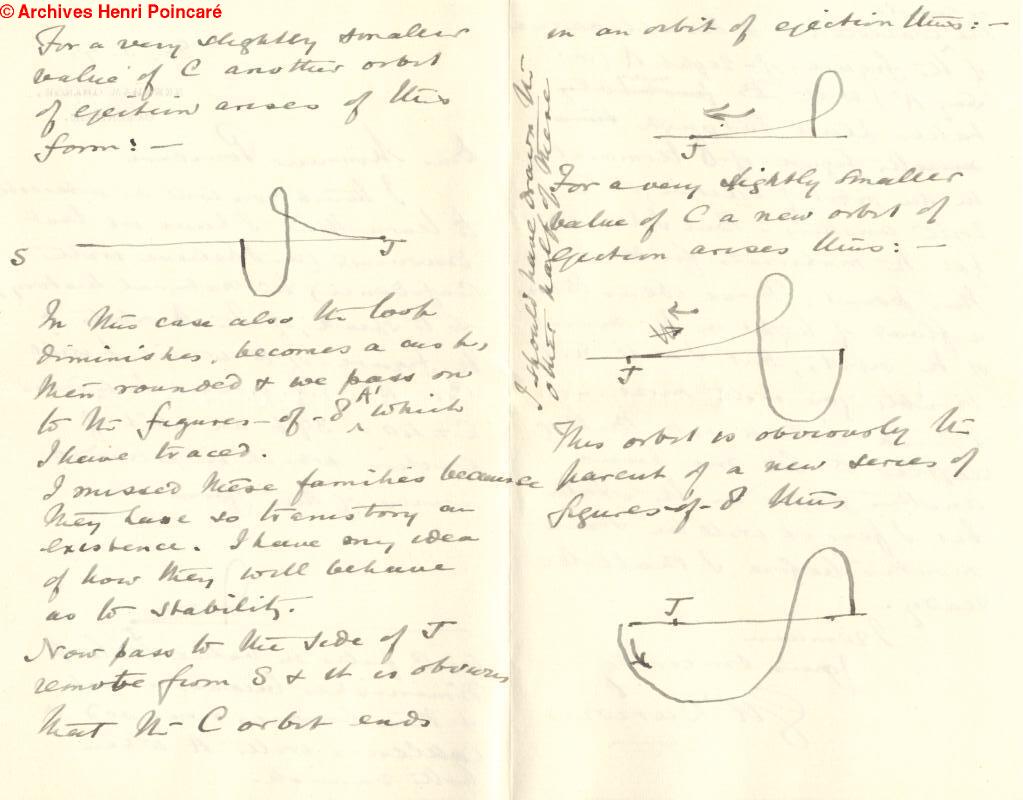 © Archives Henri Poincaré
For a very slightly smaller
value of C another orbit
of ejection arises of this
form: —
S
J
In this case also the loop
diminishes, becomes a cusp,
then rounded & we pass on
to the figures-of-8 A' which
I have traced.
I missed these families because
they have so transitory an
existence. I have any idea
of how they will behave
as to stability.
Now pass to the side of J
remote from S & it is obvious
that the C orbit ends
I should have drawn the
other half of these
in an orbit of ejection thus: —
J
For a very slightly smaller
value of C a new orbit of
ejection arises thus: —
J
This orbit is obviously the
parent of a new series of
figures-of-8 thus
J